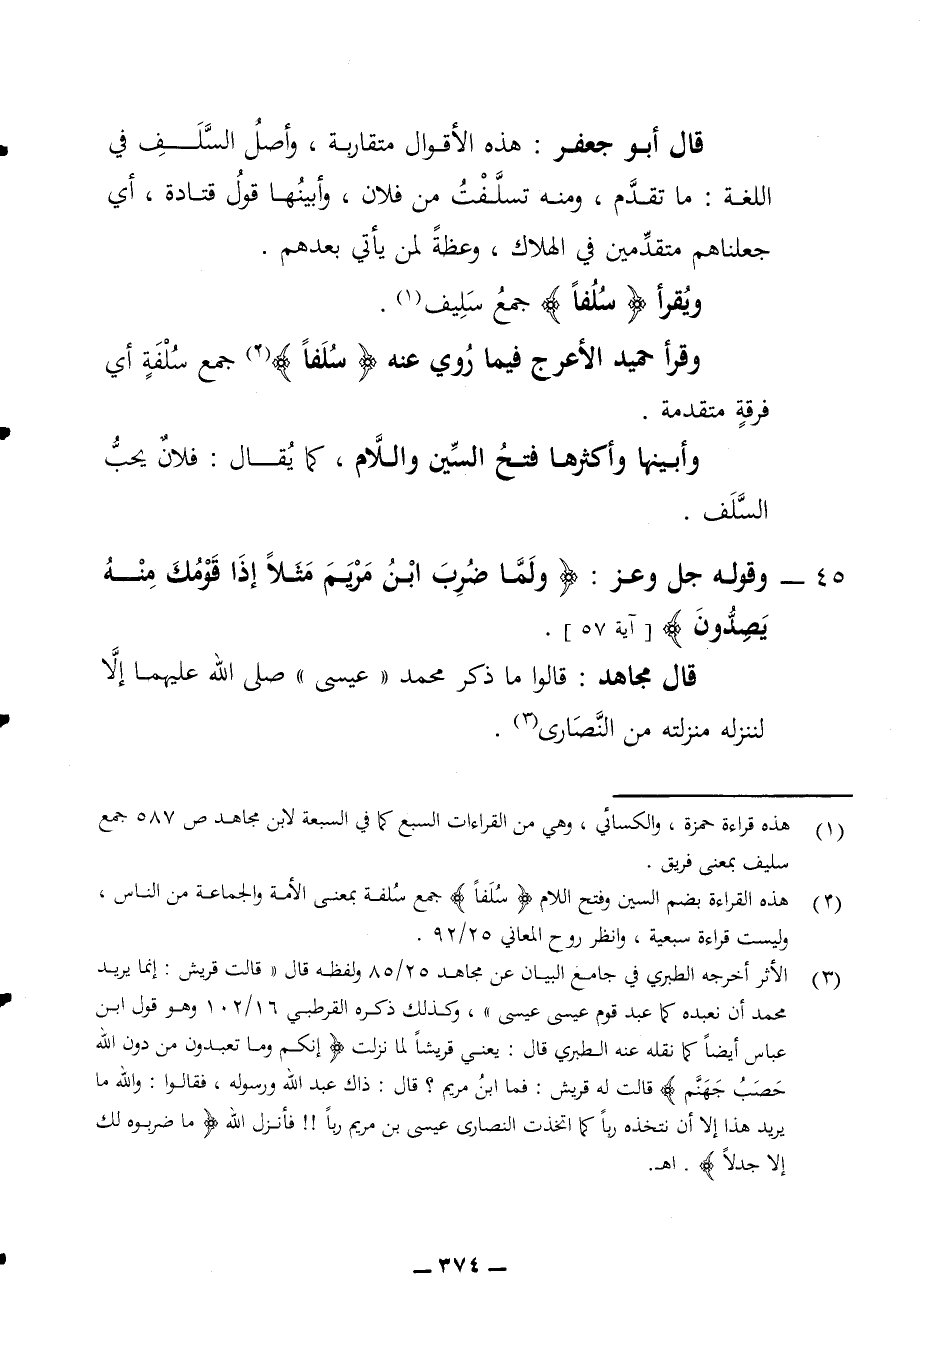 قال أبو جعفر : هذه الأقوال متقاربة ، وأصلُ السَّلَف في
اللغة : ما تقدَّم ، ومنه تسلَّفْتُ من فلان ، وأبينُها قولُ قتادة ، أي
جعلناهم متقدِّمين في الهلاك ، وعظةً لمن يأتي بعدهم .
ويُقرأ ﴿ سُلُفاً ﴾ جمعُ سَلِيف(١) .
وقرأ حميد الأعرج فيما رُوي عنه ﴿ سُلَفاً ﴾(٢) جمع سُلْفَةٍ أي
فرقةٍ متقدمة .
وأبينها وأكثرها فتحُ السِّين واللَّام ، كما يُقال : فلانٌ يحبُّ
السَّلَف .
٤٥ – وقوله جل وعز : ﴿ ولَمَّا ضُرِبَ ابْنُ مَرْيَمَ مَثَلاً إذَا قَوْمُكَ مِنْهُ
يَصِدُّونَ ﴾ [ آية ٥٧ ] .
قال مجاهد : قالوا ما ذكر محمد « عيسى » صلى الله عليهما إلَّا
لننزله منزلته من النَّصَارى(٣) .
(١) هذه قراءة حمزة ، والكسائي ، وهي من القراءات السبع كما في السبعة لابن مجاهد ص ٥٨٧ جمع
سليف بمعنى فريق .
(٢) هذه القراءة بضم السين وفتح اللام ﴿ سُلَفاً ﴾ جمع سُلفة بمعنى الأمة والجماعة من الناس ،
وليست قراءة سبعية ، وانظر روح المعاني ٩٢/٢٥ .
(٣) الأثر أخرجه الطبري في جامع البيان عن مجاهد ٨٥/٢٥ ولفظه قال « قالت قريش : إنما يريد
محمد أن نعبده كما عبد قوم عيسى عيسى » ، وكذلك ذكره القرطبي ١٠٢/١٦ وهو قول ابن
عباس أيضاً كما نقله عنه الطبري قال : يعني قريشاً لما نزلت ﴿ إنكم وما تعبدون من دون الله
حَصَبُ جَهَنَّم ﴾ قالت له قريش : فما ابنُ مريم ؟ قال : ذاك عبد الله ورسوله ، فقالوا : والله ما
يريد هذا إلا أن نتخذه رباً كما اتخذت النصارى عيسى بن مريم رباً !! فأنزل الله ﴿ ما ضربوه لك
إلا جدلاً ﴾ . اهـ.
– ٣٧٤ –